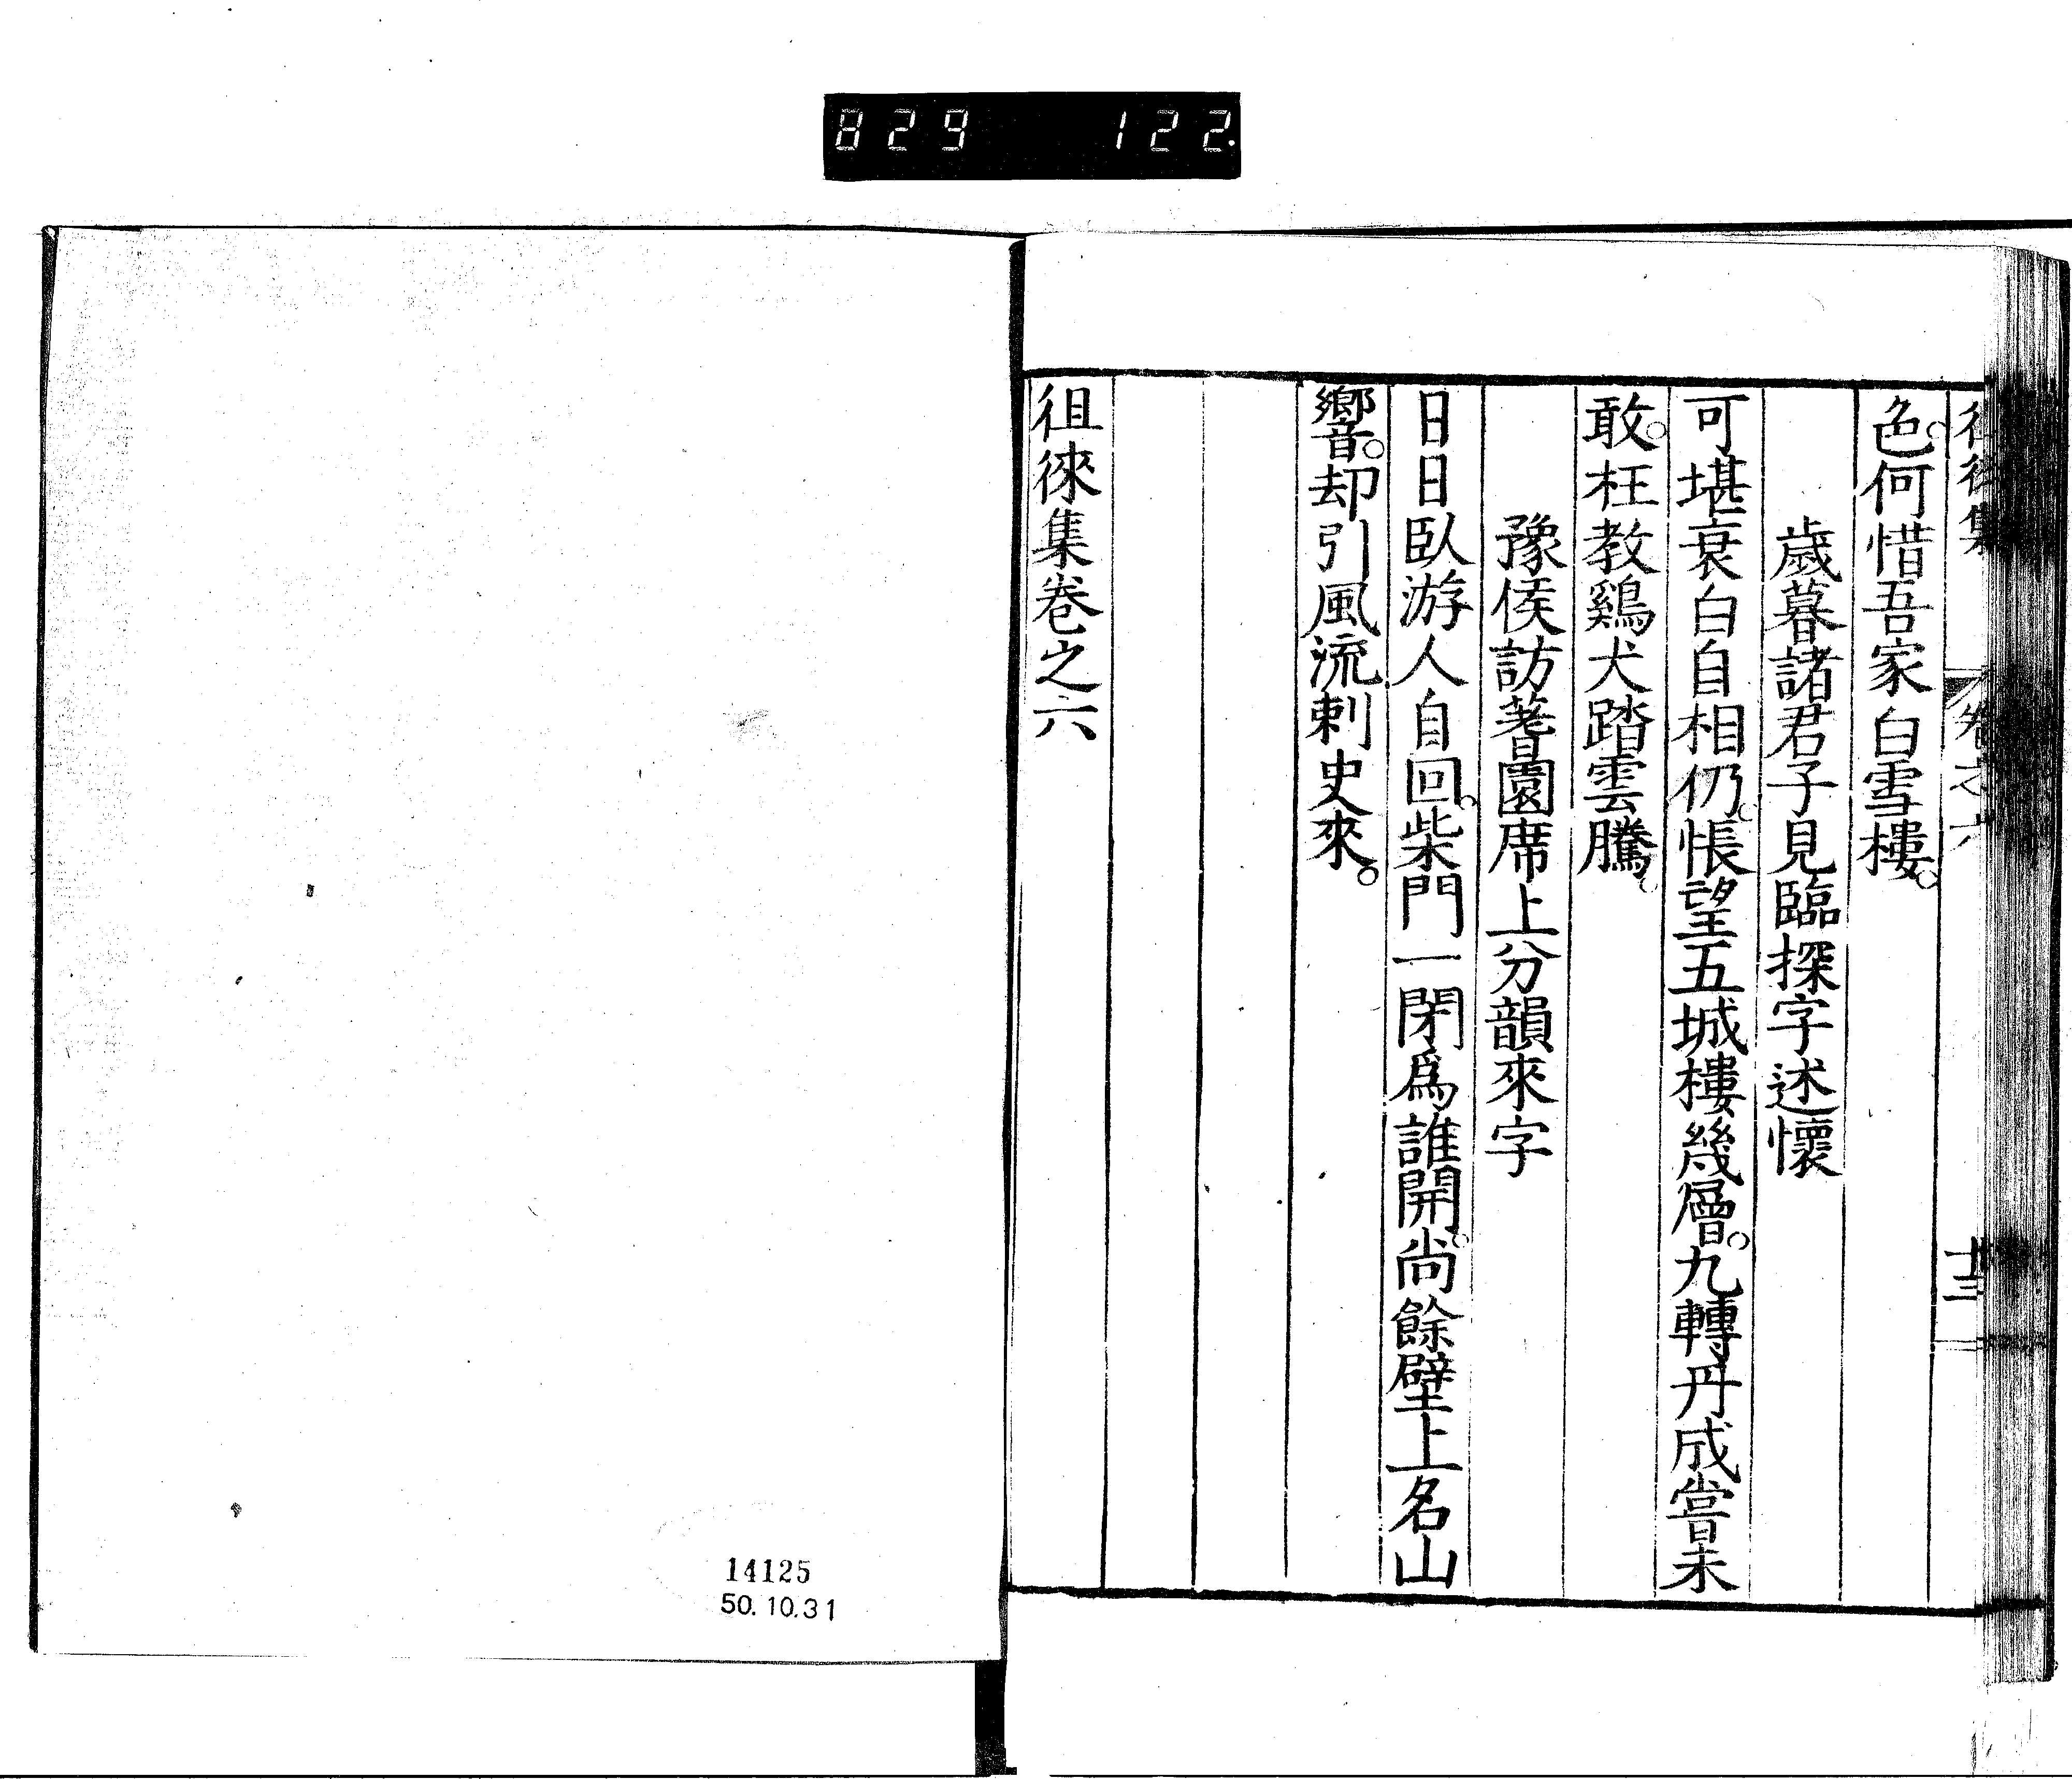 829 122.
徂徠集 卷之六 十三
色。何惜吾家白雪樓。
歲暮諸君子見臨探字述懷
可堪衰白自相仍。悵望五城樓幾層。九轉丹成嘗未
敢。枉教鷄犬踏雲騰。
豫侯訪蓍園席上分韻來字
日日臥游人自回。柴門一閉爲誰開。尚餘壁上名山
響。却引風流剌史來。
徂徠集卷之六
14125
50.10.31